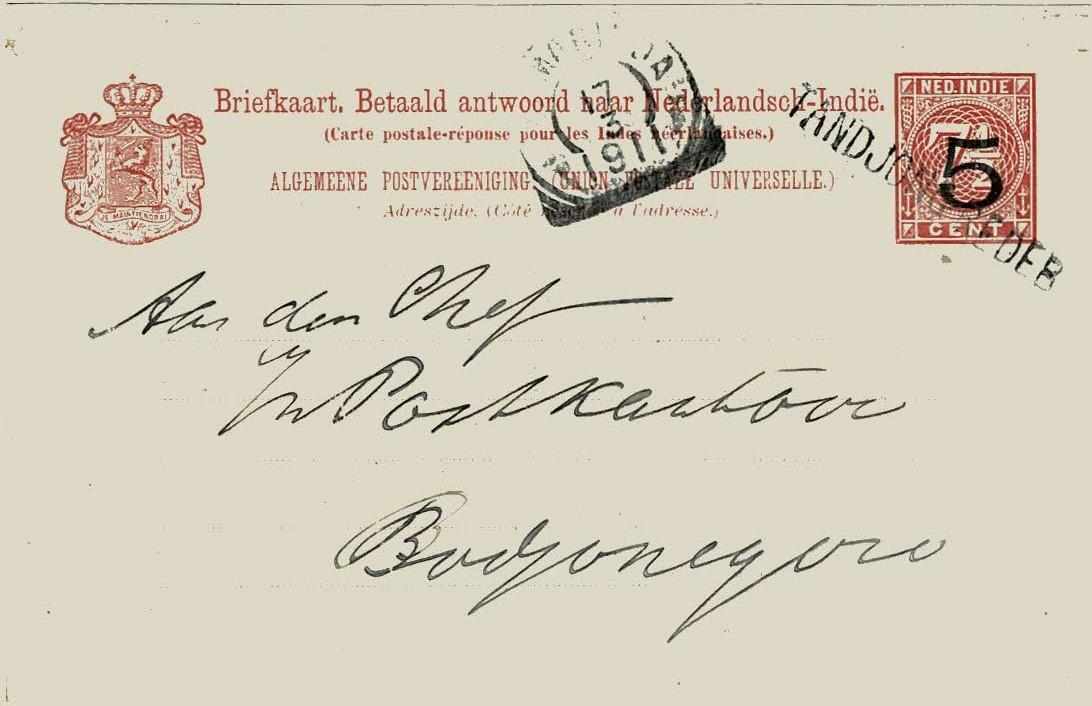 Briefkaart. Betaald antwoord naar Nederlandsch-Indië.
(Carte postale-réponse pour les Indes néerlandaises.)
ALGEMEENE POSTVEREENIGING (UNION POSTALE UNIVERSELLE.)
Adreszijde. (Côté réservé à l'adresse.)
JE MAINTIENDRAI
17
3
1911
NED. INDIE
7½
5
CENT
TANDJONG REDEB
Aan den Chef
Postkantoor
Bodjonegoro